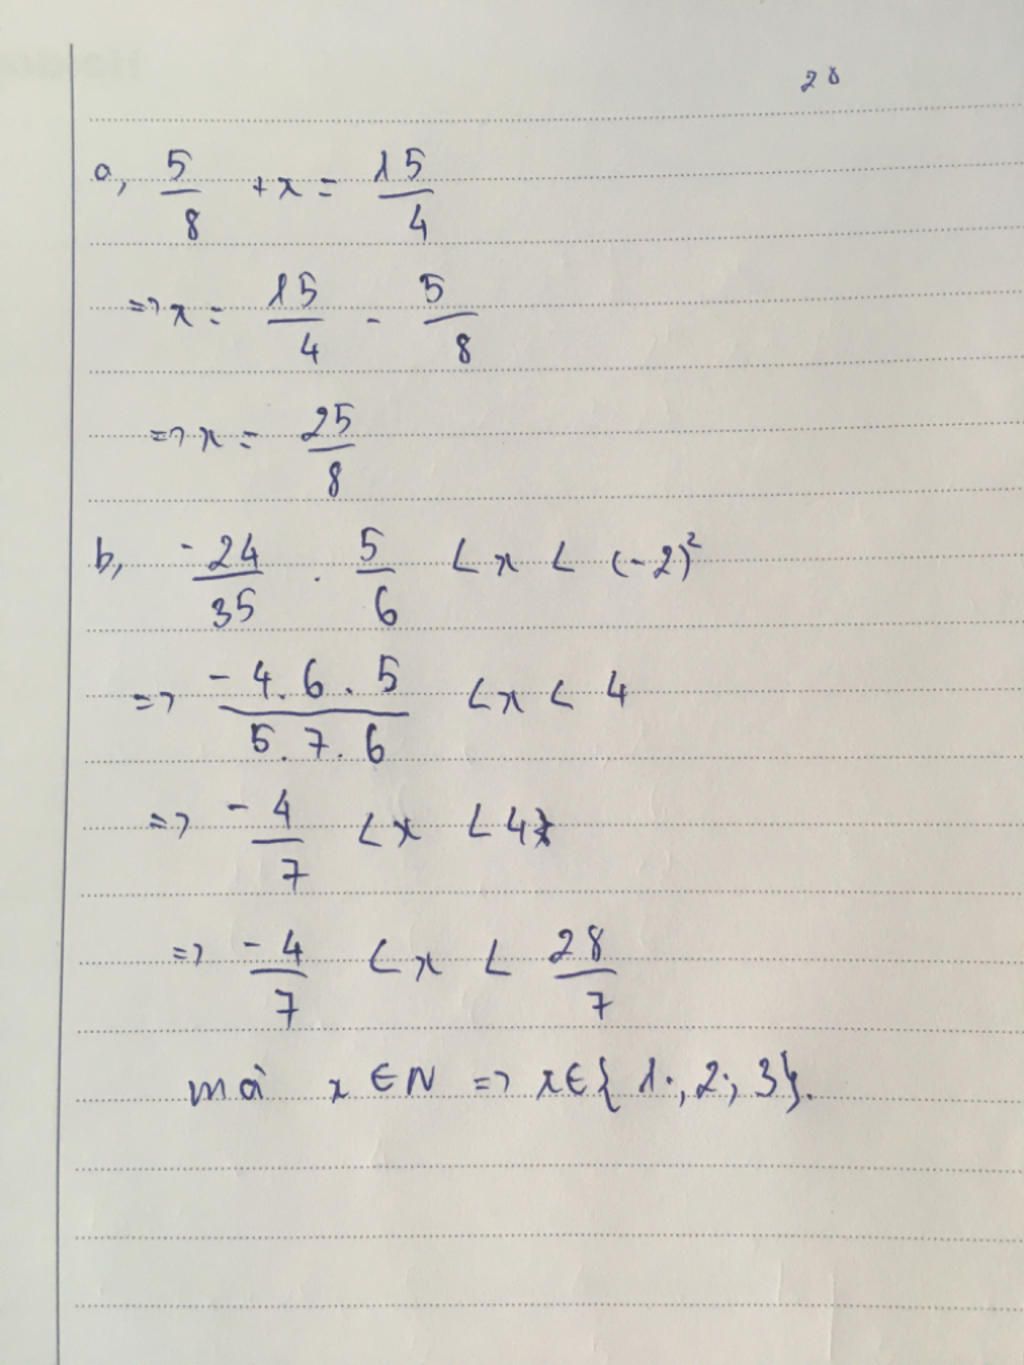 28
a, 5/8 + x = 15/4
=> x = 15/4 - 5/8
=> x = 25/8
b, -24/35 . 5/6 < x < (-2)²
=> -4.6.5/5.7.6 < x < 4
=> -4/7 < x < 4
=> -4/7 < x < 28/7
mà x ∈ N => x ∈ { 1; 2; 3}.